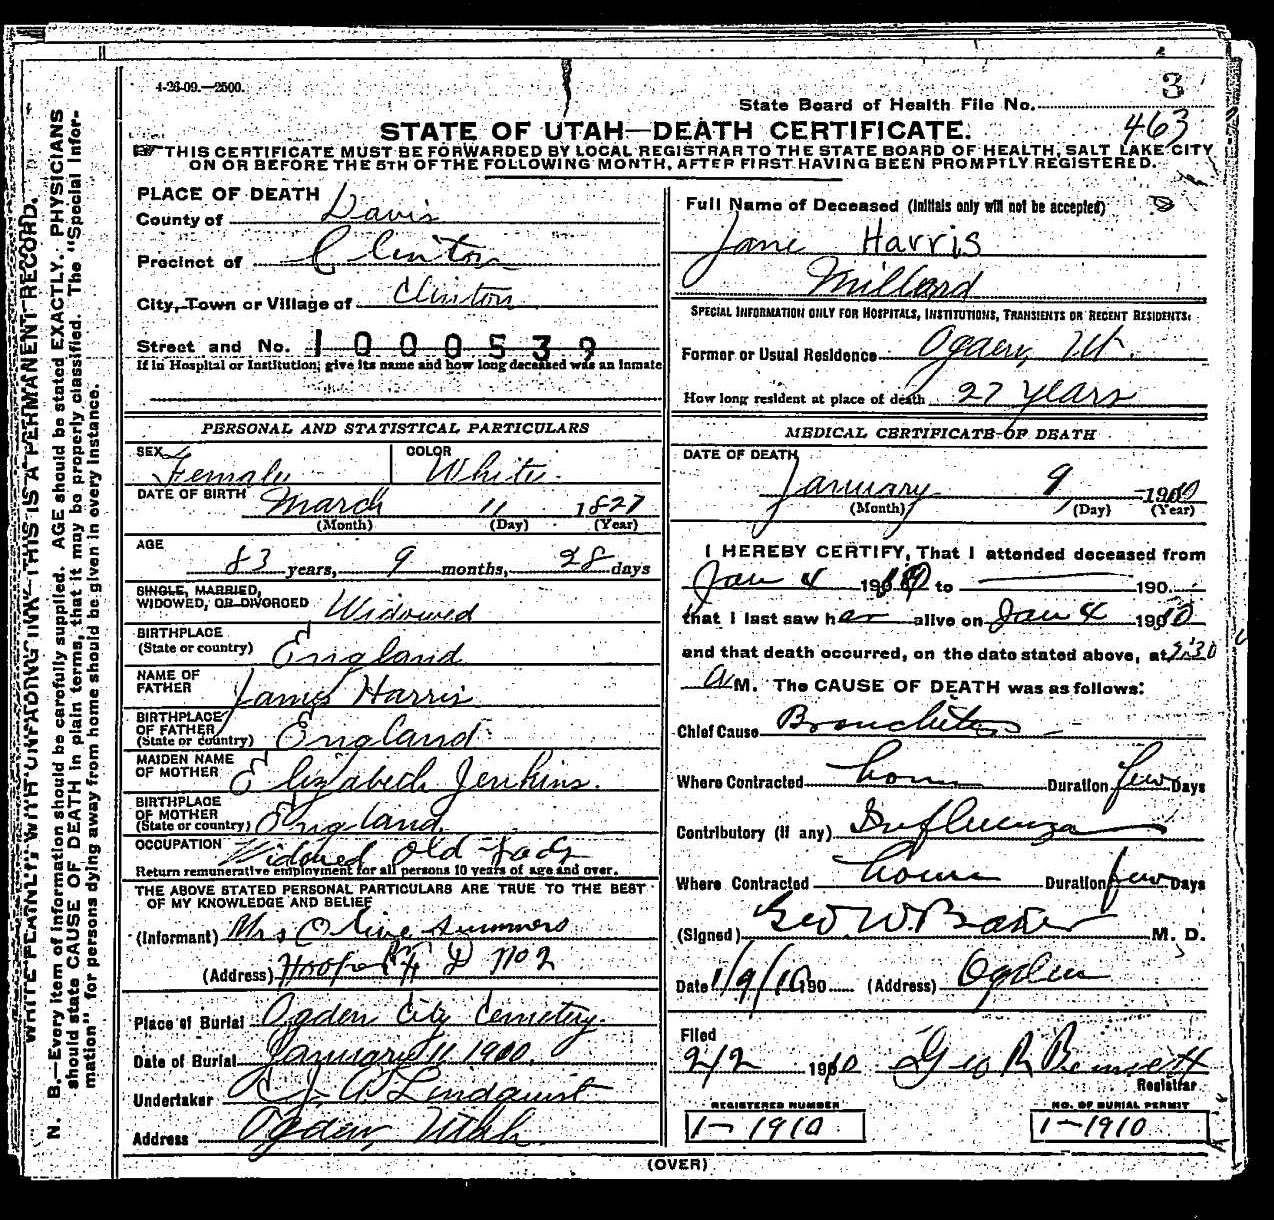 4-26-09.—2500.
3
State Board of Health File No.
463
STATE OF UTAH—DEATH CERTIFICATE.
THIS CERTIFICATE MUST BE FORWARDED BY LOCAL REGISTRAR TO THE STATE BOARD OF HEALTH, SALT LAKE CITY
ON OR BEFORE THE 5TH OF THE FOLLOWING MONTH, AFTER FIRST HAVING BEEN PROMPTLY REGISTERED.
WRITE PLAINLY, WITH UNFADING INK—THIS IS A PERMANENT RECORD.
N. B.—Every item of information should be carefully supplied. AGE should be stated EXACTLY. PHYSICIANS
should state CAUSE OF DEATH in plain terms, that it may be properly classified. The "Special Infor-
mation" for persons dying away from home should be given in every instance.
PLACE OF DEATH
County of Davis
Precinct of Clinton
City, Town or Village of Clinton
Street and No. 1000539
If in Hospital or Institution, give its name and how long deceased was an inmate
PERSONAL AND STATISTICAL PARTICULARS
SEX Female COLOR White
DATE OF BIRTH March 11 1827
(Month) (Day) (Year)
AGE
83 years, 9 months, 28 days
SINGLE, MARRIED,
WIDOWED, OR DIVORCED Widowed
BIRTHPLACE
(State or country) England
NAME OF
FATHER James Harris
BIRTHPLACE
OF FATHER
(State or country) England
MAIDEN NAME
OF MOTHER Elizabeth Jenkins.
BIRTHPLACE
OF MOTHER
(State or country) England
OCCUPATION Widowed Old Lady
Return remunerative employment for all persons 10 years of age and over.
THE ABOVE STATED PERSONAL PARTICULARS ARE TRUE TO THE BEST
OF MY KNOWLEDGE AND BELIEF
(Informant) Mrs Olive Summers
(Address) Hooper R F D No 2
Place of Burial Ogden City Cemetery.
Date of Burial January 11 1910.
Undertaker C. J. A Lindquist
Address Ogden, Utah.
Full Name of Deceased (Initials only will not be accepted)
Jane Harris
Millard
SPECIAL INFORMATION ONLY FOR HOSPITALS, INSTITUTIONS, TRANSIENTS OR RECENT RESIDENTS:
Former or Usual Residence Ogden, Ut.
How long resident at place of death 27 years
MEDICAL CERTIFICATE OF DEATH
DATE OF DEATH
January 9, 1910
(Month) (Day) (Year)
I HEREBY CERTIFY, That I attended deceased from
Jan 4 1910 to 190
that I last saw her alive on Jan 4 1910
and that death occurred, on the date stated above, at
A M. The CAUSE OF DEATH was as follows:
Chief Cause Bronchitis
Where Contracted home Duration few Days
Contributory (if any) Influenza
Where Contracted home Duration few Days
(Signed) Geo. W. Baker M. D.
Date 1/9/10 190 (Address) Ogden
Filed
2/2 1910 Geo R Bennett
Registrar
REGISTERED NUMBER
1-1910
NO. OF BURIAL PERMIT
1-1910
(OVER)